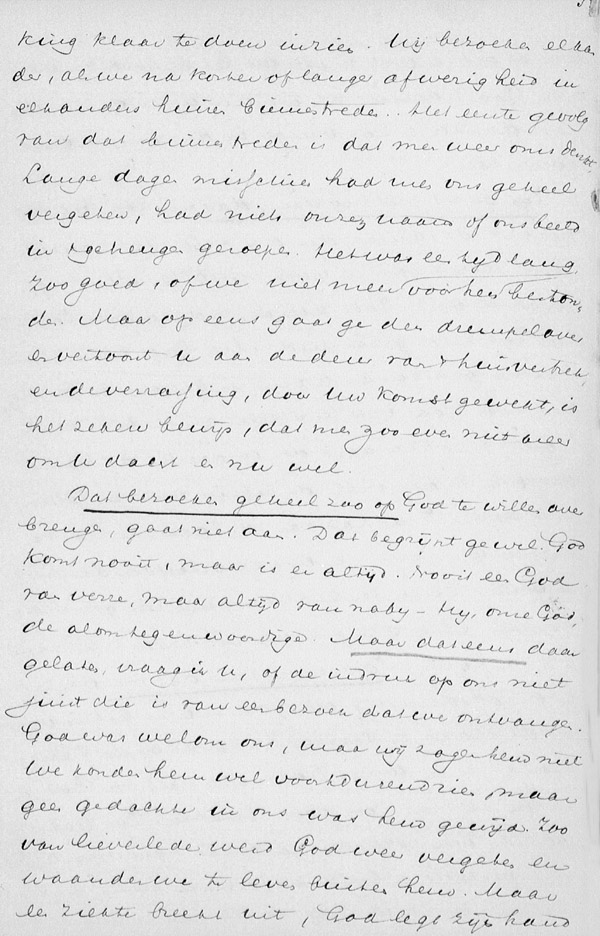 king klaar te doen inzien. Wij bezoeken elkan
der, als we na korter of langer afwezigheid in
elkanders huizen binnentreden. Het eerste gevolg
van dat binnentreden is dat men weer om u denkt
Lange dagen misschien had men ons geheel
vergeten, had niets onzen naam of ons beeld
in 't geheugen geroepen. Het was een tyd lang
zoo goed, of we niet meer voor hen beston,
den. Maar op eens gaat ge den drempel over
en vertoont u aan de deur van 't huisvertrek,
en de verrassing, door uw komst gewekt, is
het zeker bewijs, dat men zoo even niet meer
om u dacht en nu wel.
Dat bezoeken geheel zoo op God te willen over
brengen, gaat niet aan. Dat begrijpt ge wel. God
komt nooit, maar is er altyd. Nooit een God
van verre, maar altyd van naby - Hy, onze God,
de alomtegenwoordige. Maar dat eens daar
gelaten, vraag ik u, of de indruk op ons niet
juist die is van een bezoek dat we ontvangen.
God was wel om ons, maar wij zagen hem niet
We konden hem wel voortdurend zien, maar
geen gedachte in ons was hem gewijd. Zoo
van lieverlede werd God weer vergeten en
waanden we te leven buiten hem. Maar
een ziekte breekt uit, God legt zijn hand